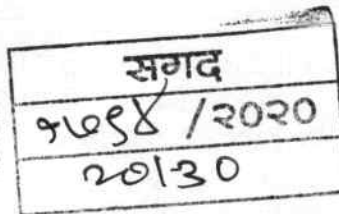 सगद
१७९४ /२०२०
२०/३०